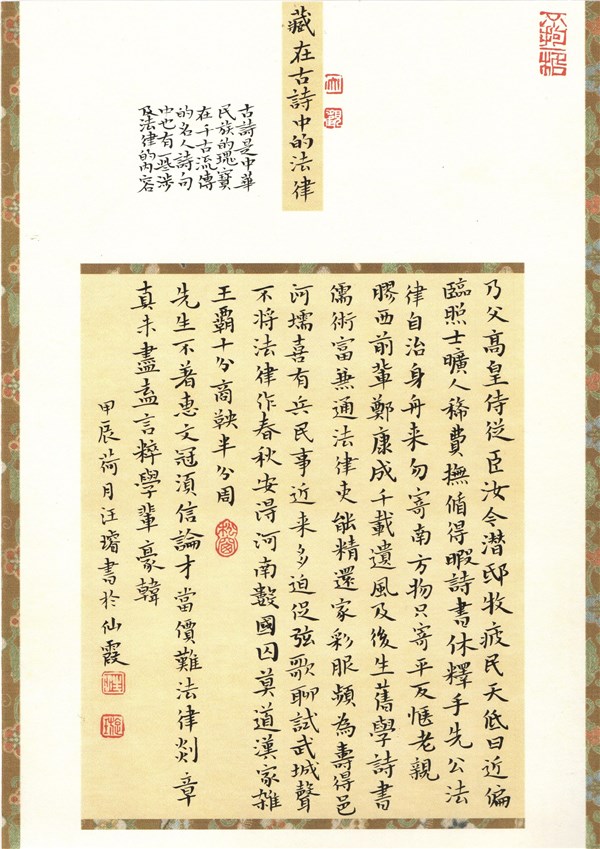 藏在古詩中的法律
古詩是中華
民族的瑰寶
在千古流傳
的名人詩句
中也有一些涉
及法律的內容
乃父高皇侍從臣汝令潛邸牧疲民天低日近偏
臨照士曠人稀費撫循得暇詩書休釋手先公法
律自治身舟来勿寄南方物只寄平反愜老親
膠西前輩鄭康成千載遺風及後生舊學詩書
儒術富兼通法律吏能精還家彩服頻為壽得邑
河壖喜有兵民事近来多迫促弦歌聊試武城聲
不將法律作春秋安得河南數國囚莫道漢家雜
王霸十分商鞅半分周
先生不著惠文冠須信論才當價難法律剡章
真未盡盍言粹學輩豪韓
甲辰荷月汪璿書於仙霞